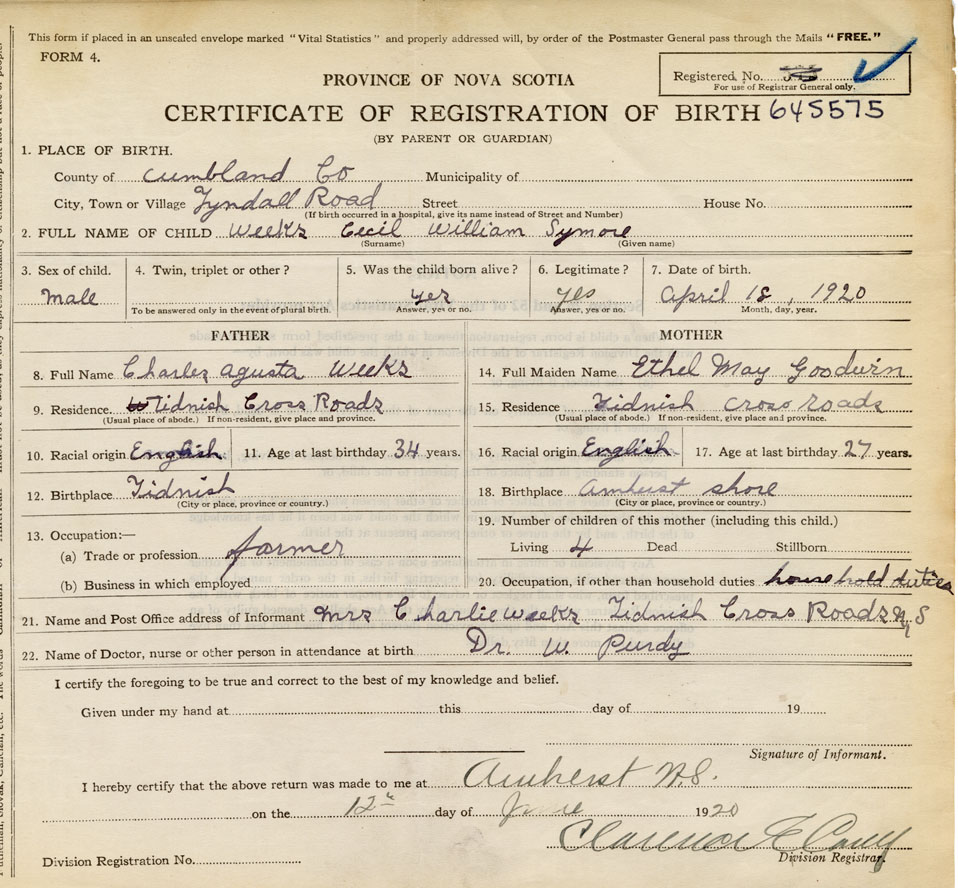 This form if placed in an unscaled envelope marked "Vital Statistics" and properly addressed will, by order of the Postmaster General pass through the Mails "FREE."
FORM 4.
PROVINCE OF NOVA SCOTIA
Registered No.
For use of Registrar General only.
CERTIFICATE OF REGISTRATION OF BIRTH 645575
(BY PARENT OR GUARDIAN)
1. PLACE OF BIRTH.
County of Cumbland Co Municipality of
City, Town or Village Tyndall Road Street House No.
(If birth occurred in a hospital, give its name instead of Street and Number)
2. FULL NAME OF CHILD Weeks Cecil William Symore
(Surname) (Given name)
3. Sex of child. 4. Twin, triplet or other? 5. Was the child born alive? 6. Legitimate? 7. Date of birth.
Male yes yes April 18, 1920
To be answered only in the event of plural birth. Answer, yes or no. Answer, yes or no. Month, day, year.
FATHER MOTHER
8. Full Name Charles agusta Weeks 14. Full Maiden Name Ethel May Goodwin
9. Residence. Tidnish Cross Roads 15. Residence Tidnish cross roads
(Usual place of abode.) If non-resident, give place and province. (Usual place of abode.) If non-resident, give place and province.
10. Racial origin English 11. Age at last birthday 34 years. 16. Racial origin English 17. Age at last birthday 27 years.
12. Birthplace Tidnish 18. Birthplace Amhust shore
(City or place, province or country.) (City or place, province or country.)
13. Occupation:— 19. Number of children of this mother (including this child.)
(a) Trade or profession farmer Living 4 Dead Stillborn
(b) Business in which employed 20. Occupation, if other than household duties household duties
21. Name and Post Office address of Informant Mrs Charlie Weeks Tidnish Cross Roads N S
22. Name of Doctor, nurse or other person in attendance at birth Dr. W. Purdy
I certify the foregoing to be true and correct to the best of my knowledge and belief.
Given under my hand at this day of 19
Signature of Informant.
I hereby certify that the above return was made to me at Amherst N.S.
on the 12th day of June 1920
Clarence E
Division Registration No. Division Registrar.